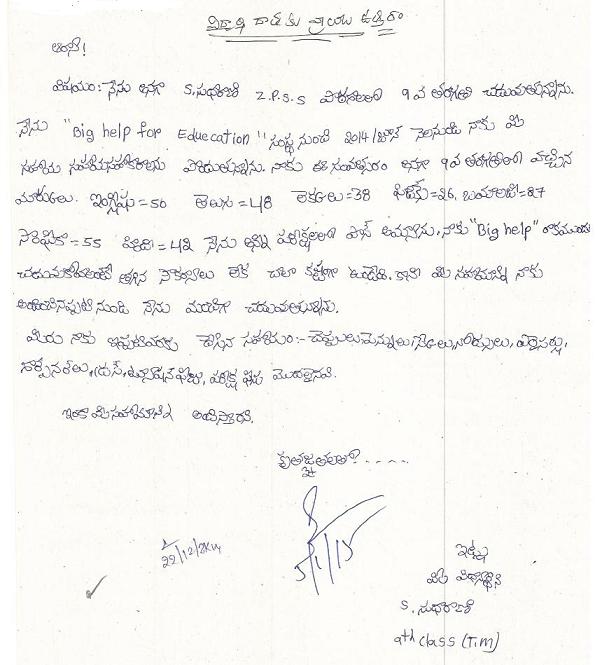 విద్యా దాతకు వ్రాయు ఉత్తరం
విషయం:- నేను అనగా S.సుధారాణి Z.P.S.S పాఠశాలలో 9వ తరగతి చదువుతున్నాను.
నేను "Big help for Educecation" సంస్థ నుండి 2014/జూన్ నెలనుండి నాకు మీ
సహాయ సహకారాలను పొందుతున్నాను. నాకు ఈ సంవత్సరం అనగా 9వ తరగతిలో వచ్చిన
మార్కులు. ఇంగ్లీషు=50 తెలుగు=48 లెక్కలు=38 ఫిజిక్స్=26. బయాలజి=27
సోషల్=55 హింది=42 నేను అన్ని పరీక్షలలో పాస్ అయ్యాను, నాకు "Big help" రాకముందు
చదువుకోవాలంటే తగిన సౌకర్యాలు లేక చాలా కష్టంగా ఉండేది. కాని మీ సహాయాన్ని నాకు
అందించినప్పటి నుండి నేను మంచిగా చదువుతున్నాను.
మీరు నాకు ఇప్పటివరకు చేసిన సహాయం:- చెప్పులు, పెన్నులు, నోట్సులు,
డ్రస్, ట్యూషన్ ఫీజు, పరీక్ష ఫీజు మొదలైనవి.
ఇంకా మీ సహాయాన్ని అందిస్తారని.
కృతజ్ఞతలతో? .....
5/1/15
22/12/2014
ఇట్లు
మీ విద్యార్థిని
S. సుధారాణి
9th class (T.M)